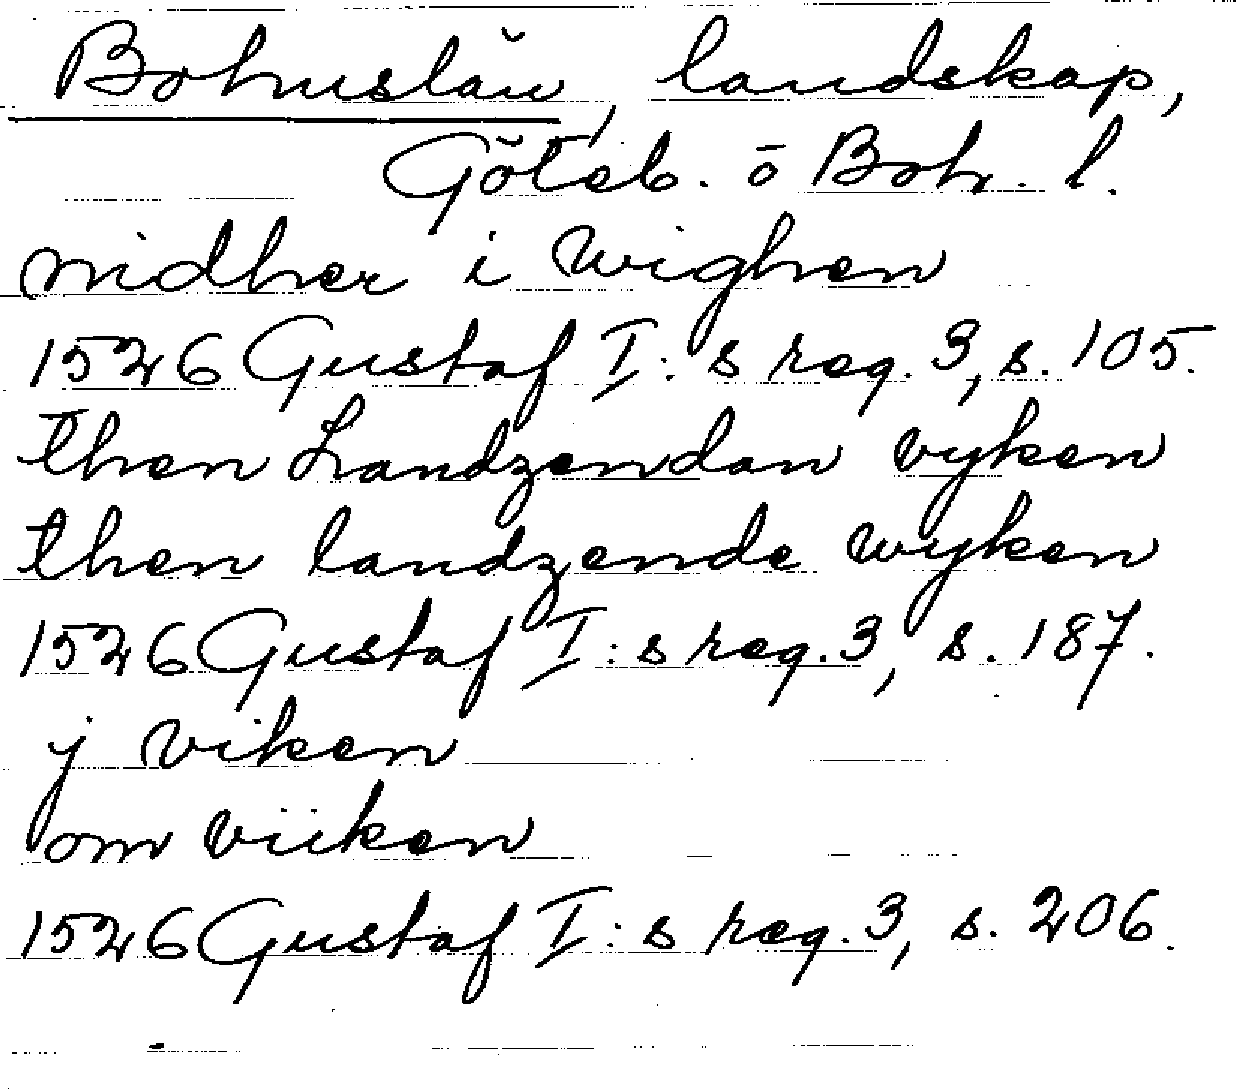 Bohuslän, landskap,
Göteb. o Boh. l.
nidher i wighen
1526 Gustaf I:s reg. 3, s. 105.
then Landzendan vyken
then landzende wyken
1526 Gustaf I:s reg. 3, s. 187.
j viken
om viiken
1526 Gustaf I:s reg. 3, s. 206.